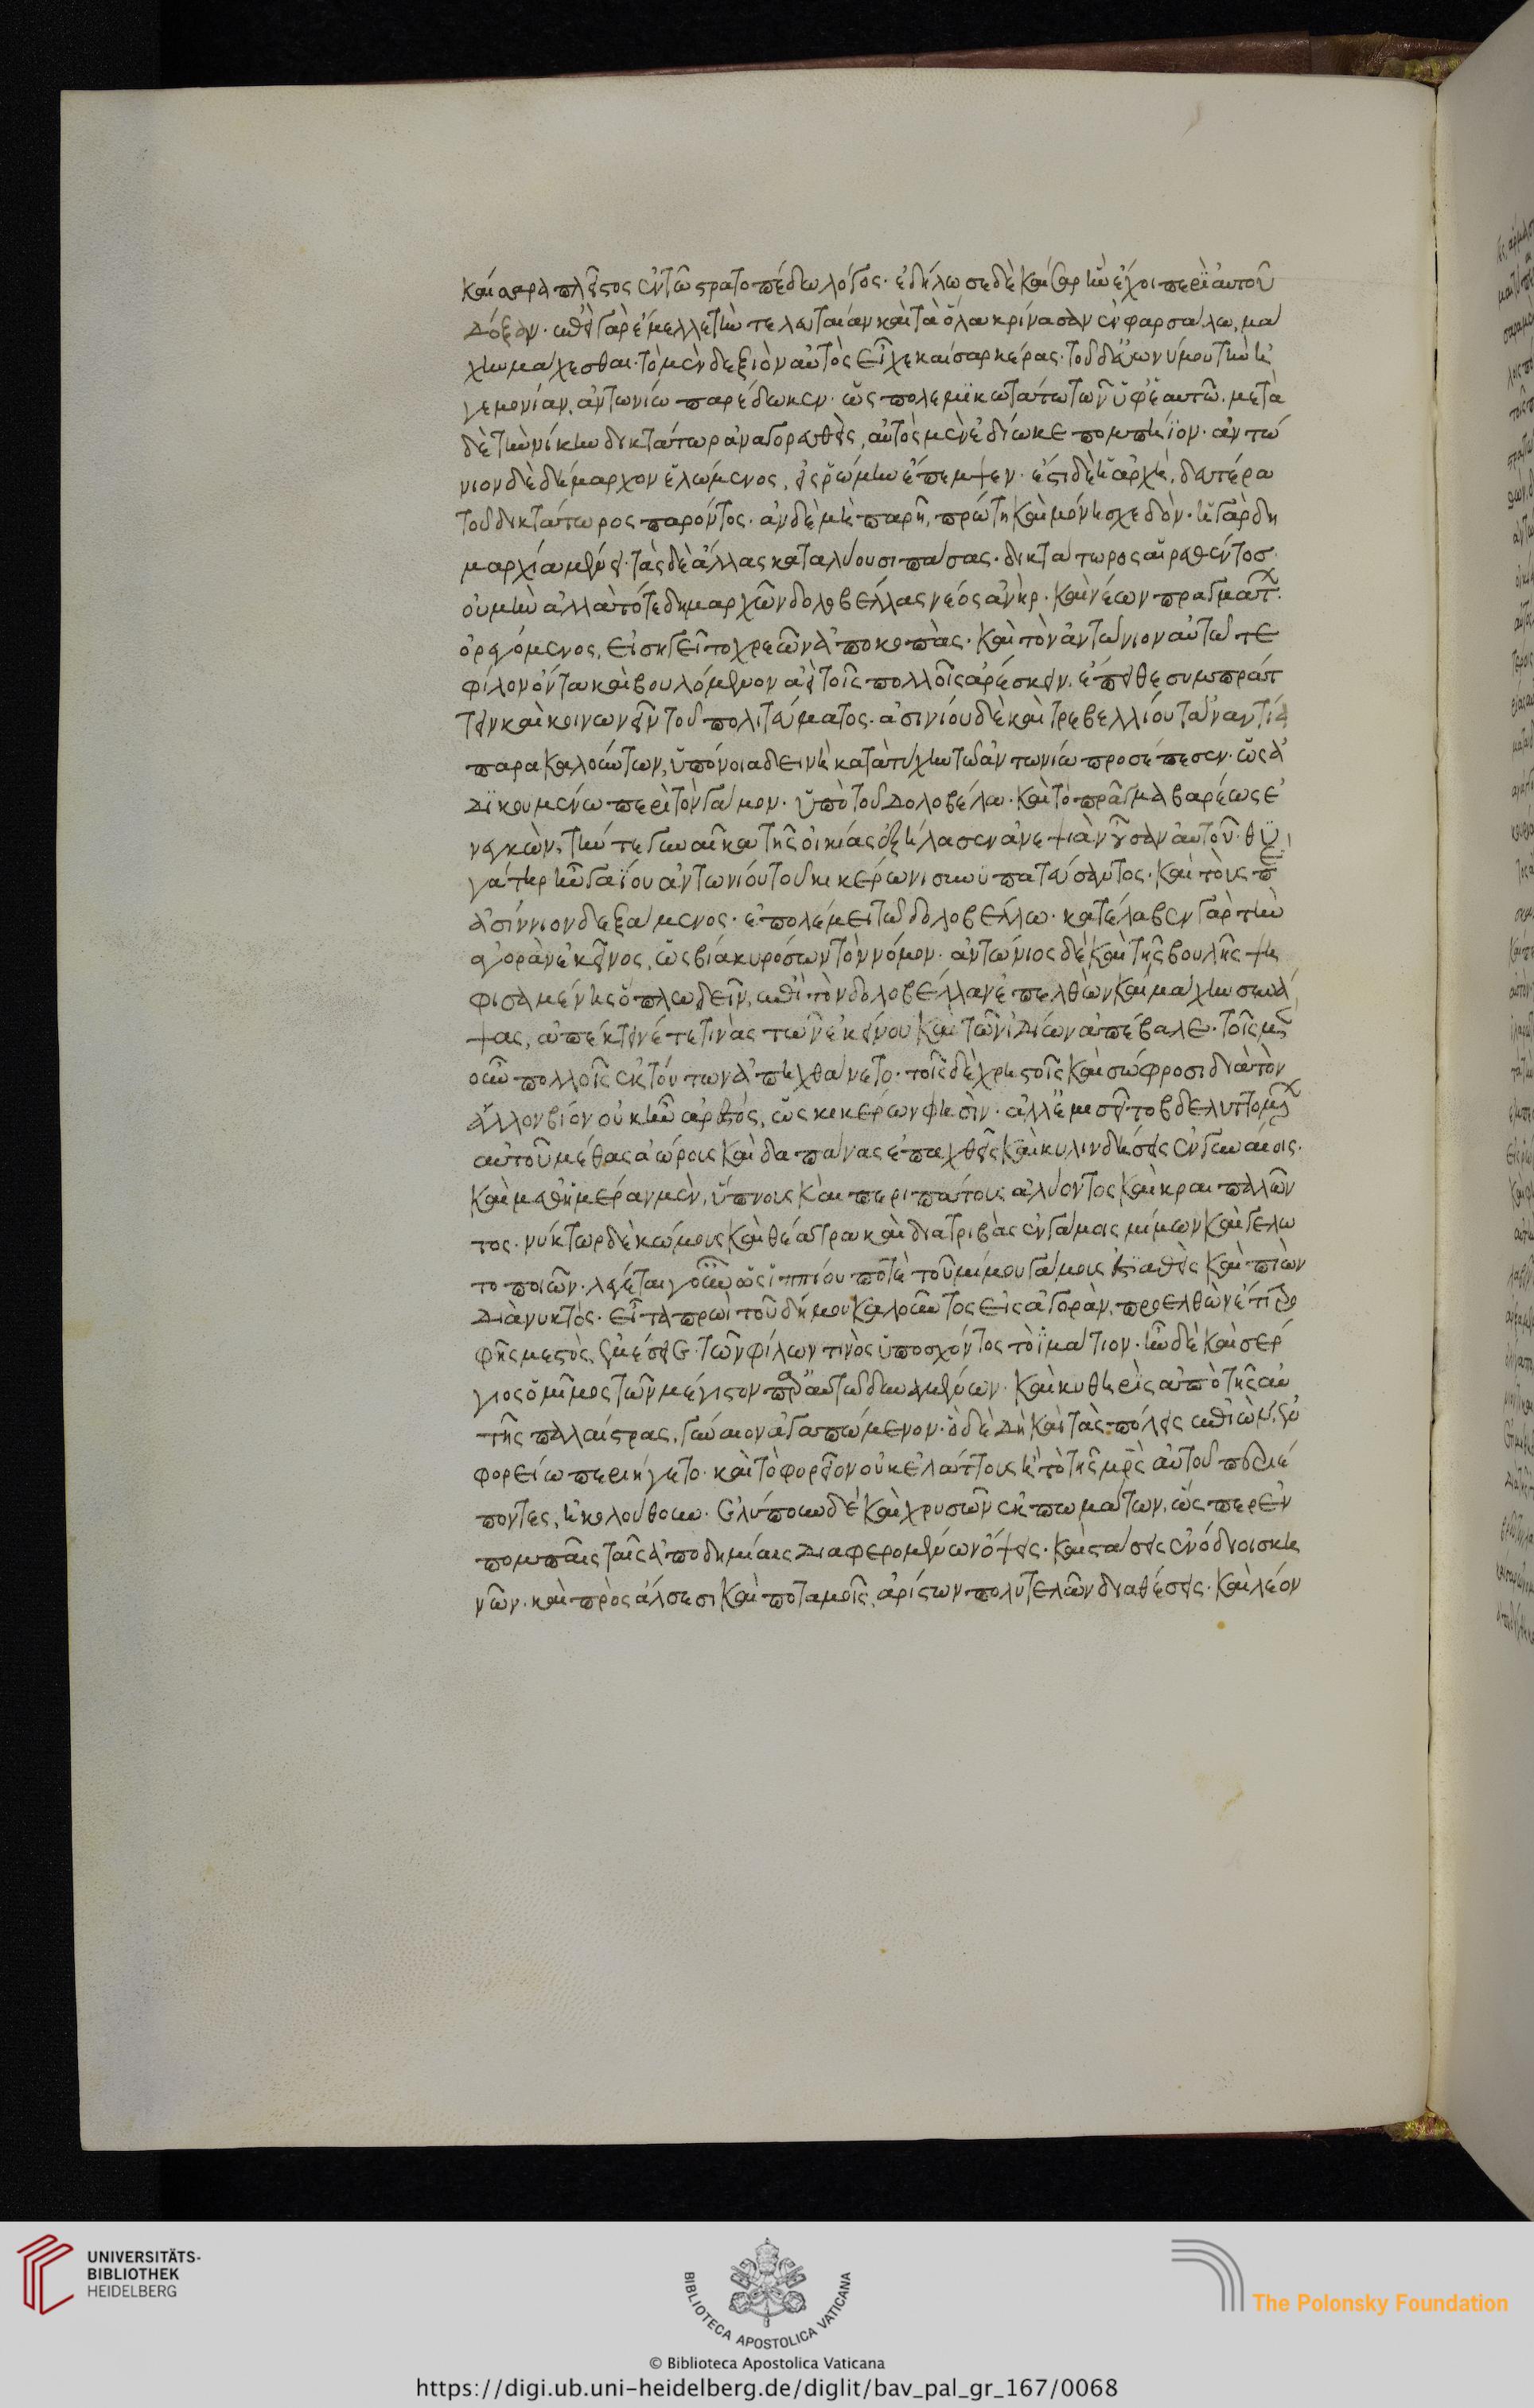 καίσαρα πλεῖστος ἐν τῶ στρατοπέδω λόγος· ἐδήλωσε δὲ καῖσαρ ἣν ἔχοι περὶ αὐτοῦ
δόξαν· ὡς γὰρ ἔμελλε τὴν τελευταίαν καὶ τὰ ὅλα κρίνασαν ἐν φαρσάλω, μά
χην μάχεσθαι· τὸ μὲν δεξιὸν αὐτὸς εἶχε καίσαρ κέρας· τοῦ δὲ εὐωνύμου τὴν ἡ
γεμονίαν, ἀντωνίω παρέδωκεν· ὡς πολεμικωτάτω τῶν ὑφ' ἑαυτῶ. μετὰ
δὲ τὴν νίκην δικτάτωρ ἀναγορευθεὶς, αὐτὸς μὲν ἐδίωκε πομπήϊον· ἀντώ
νιον δὲ δήμαρχον ἑλόμενος, εἰς ῥώμην ἔπεμψεν· ἔστι δὲ ἡ ἀρχὴ, δευτέρα
τοῦ δικτάτωρος παρόντος· ἂν δὲ μὴ παρῆ, πρώτη καὶ μόνη σχεδὸν· ἡ γὰρ δη
μαρχία μένει· τὰς δὲ ἄλλας καταλύουσι πάσας· δικτάτωρος αἱρεθέντος·
οὐ μὴν ἀλλὰ τότε δημαρχῶν δολοβέλλας νέος ἀνὴρ· καὶ νέων πραγμάτ
ὀρεγόμενος, εἰσηγεῖτο χρεῶν ἀποκοπὰς· καὶ τὸν ἀντώνιον αὐτῶ τε
φίλον ὄντα καὶ βουλόμενον ἀεὶ τοῖς πολλοῖς ἀρέσκειν, ἔπειθε συμπράτ
τειν καὶ κοινωνεῖν τοῦ πολιτεύματος· ἀσινίου δὲ καὶ τρεβελλίου τἀναντία
παρακαλούντων, ὑπόνοια δεινὴ κατὰ τύχην τῶ ἀντωνίω προσέπεσεν· ὡς ἀ
δικουμένω περὶ τὸν γάμον· ὑπὸ τοῦ δολοβέλα· καὶ τὸ πρᾶγμα βαρέως ἐ
νεγκὼν, τήν τε γυναῖκα τῆς οἰκίας ἐξήλασεν ἀνεψιὰν οὖσαν αὐτοῦ· θυ
γάτηρ ἦν γαΐου ἀντωνίου τοῦ κικέρωνι συνυπατεύσαντος· καὶ τοὺς π
ἀσίννιον δεξάμενος· ἐπολέμει τῶ δολοβέλλω· κατέλαβεν γὰρ τὴν
ἀγορὰν ἐκεῖνος, ὡς βία κυρόσων τὸν νόμον· ἀντώνιος δὲ καὶ τῆς βουλῆς ψη
φισαμένης ὅπλων δεῖν, ἐπὶ τὸν δολοβέλλαν ἐπελθὼν καὶ μάχην συνά
ψας, ἀπέκτεινέ τε τινὰς τῶν ἐκείνου καὶ τῶν ἰδίων ἀπέβαλε· τοῖς μὲν
οὖν πολλοῖς ἐκ τούτων ἀπηχθάνετο· τοῖς δὲ χρηστοῖς καὶ σώφροσι διὰ τὸν
ἄλλον βίον οὐκ ἦν ἀρεστός, ὡς κικέρων φησὶν· ἀλλ' ἐμισεῖτο βδελυττομένων
αὐτοῦ μέθας ἀώρους καὶ δαπάνας ἐπαχθεῖς καὶ κυλινδήσεις ἐν γυναίοις·
καὶ μεθ' ἡμέραν μὲν, ὕπνους καὶ περιπάτους ἀλύοντος καὶ κραιπαλῶν
τος· νύκτωρ δὲ κώμους καὶ θέατρα καὶ διατριβὰς ἐν γάμοις μίμων καὶ γελω
το ποιῶν· λέγεται γοῦν ὡς ἱππίου ποτὲ τοῦ μίμου γάμοις ἑστιαθεὶς καὶ πιὼν
διὰ νυκτὸς· εἶτα πρωῒ τοῦ δήμου καλοῦντος εἰς ἀγορὰν, προελθὼν ἔτι τρο
φῆς μεστὸς, ἐμέσειε· τῶν φίλων τινὸς ὑποσχόντος τὸ ἱμάτιον· ἦν δὲ καὶ σέρ
γιος ὁ μῖμος τῶν μέγιστον παρ' αὐτῶ δυναμένων· καὶ κυθηρὶς ἀπὸ τῆς αὐ
τῆς παλαίστρας, γύναιον ἀγαπώμενον· ὃ δὲ δὴ καὶ τὰς πόλεις ἐπιὼν, ἐν
φορείω περιήγετο· καὶ τὸ φορεῖον οὐκ ἐλάττους ἢ τὸ τῆς μητρὸς αὐτοῦ περιέ
ποντες, ἠκολούθουν· ἐλύπουν δὲ καὶ χρυσῶν ἐκπωμάτων, ὥσπερ ἐν
πομπαῖς ταῖς ἀποδημίαις διαφερομένων ὄψεις· καὶ στάσεις ἐνόδιοι σκη
νῶν· καὶ πρὸς ἄλσεσι καὶ ποταμοῖς, ἀρίστων πολυτελῶν διαθέσεις· καὶ λέον
UNIVERSITÄTS-
BIBLIOTHEK
HEIDELBERG
BIBLIOTECA APOSTOLICA VATICANA
The Polonsky Foundation
© Biblioteca Apostolica Vaticana
https://digi.ub.uni-heidelberg.de/diglit/bav_pal_gr_167/0068